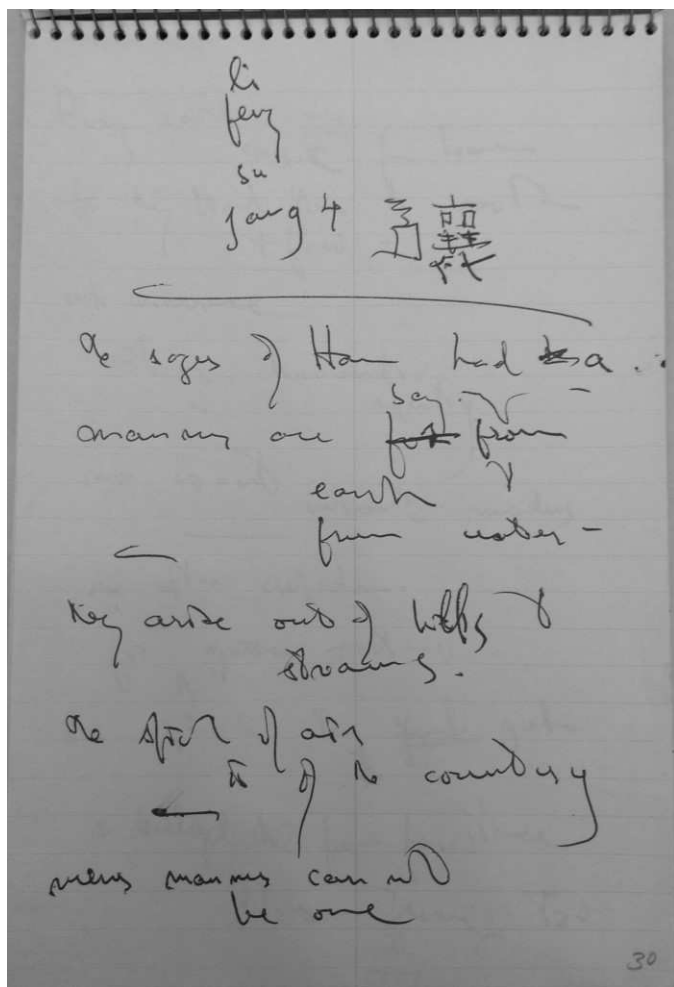 li
feng
su
jang 4
The sages of Han had a
say.
manners are from
earth &
from water -
they arise out of hills &
streams.
The spirit of air
is of the country
mens manners can not
be one
30